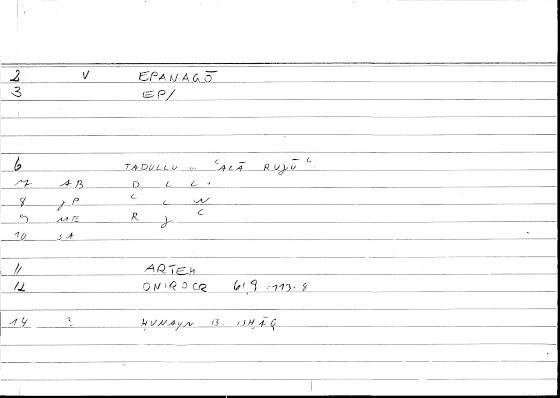 2 V EPANAGŌ
3 EP/
6 TADULLU .. ʿALĀ RUǦŪʿ
7 AB D L L.
8 JP ʿ L W
9 ME R J ʿ
10 SA
11 ARTEM
12 ONIROCR 61,9 = 113.8
14 ? ḤUNAYN B. ISḤĀQ